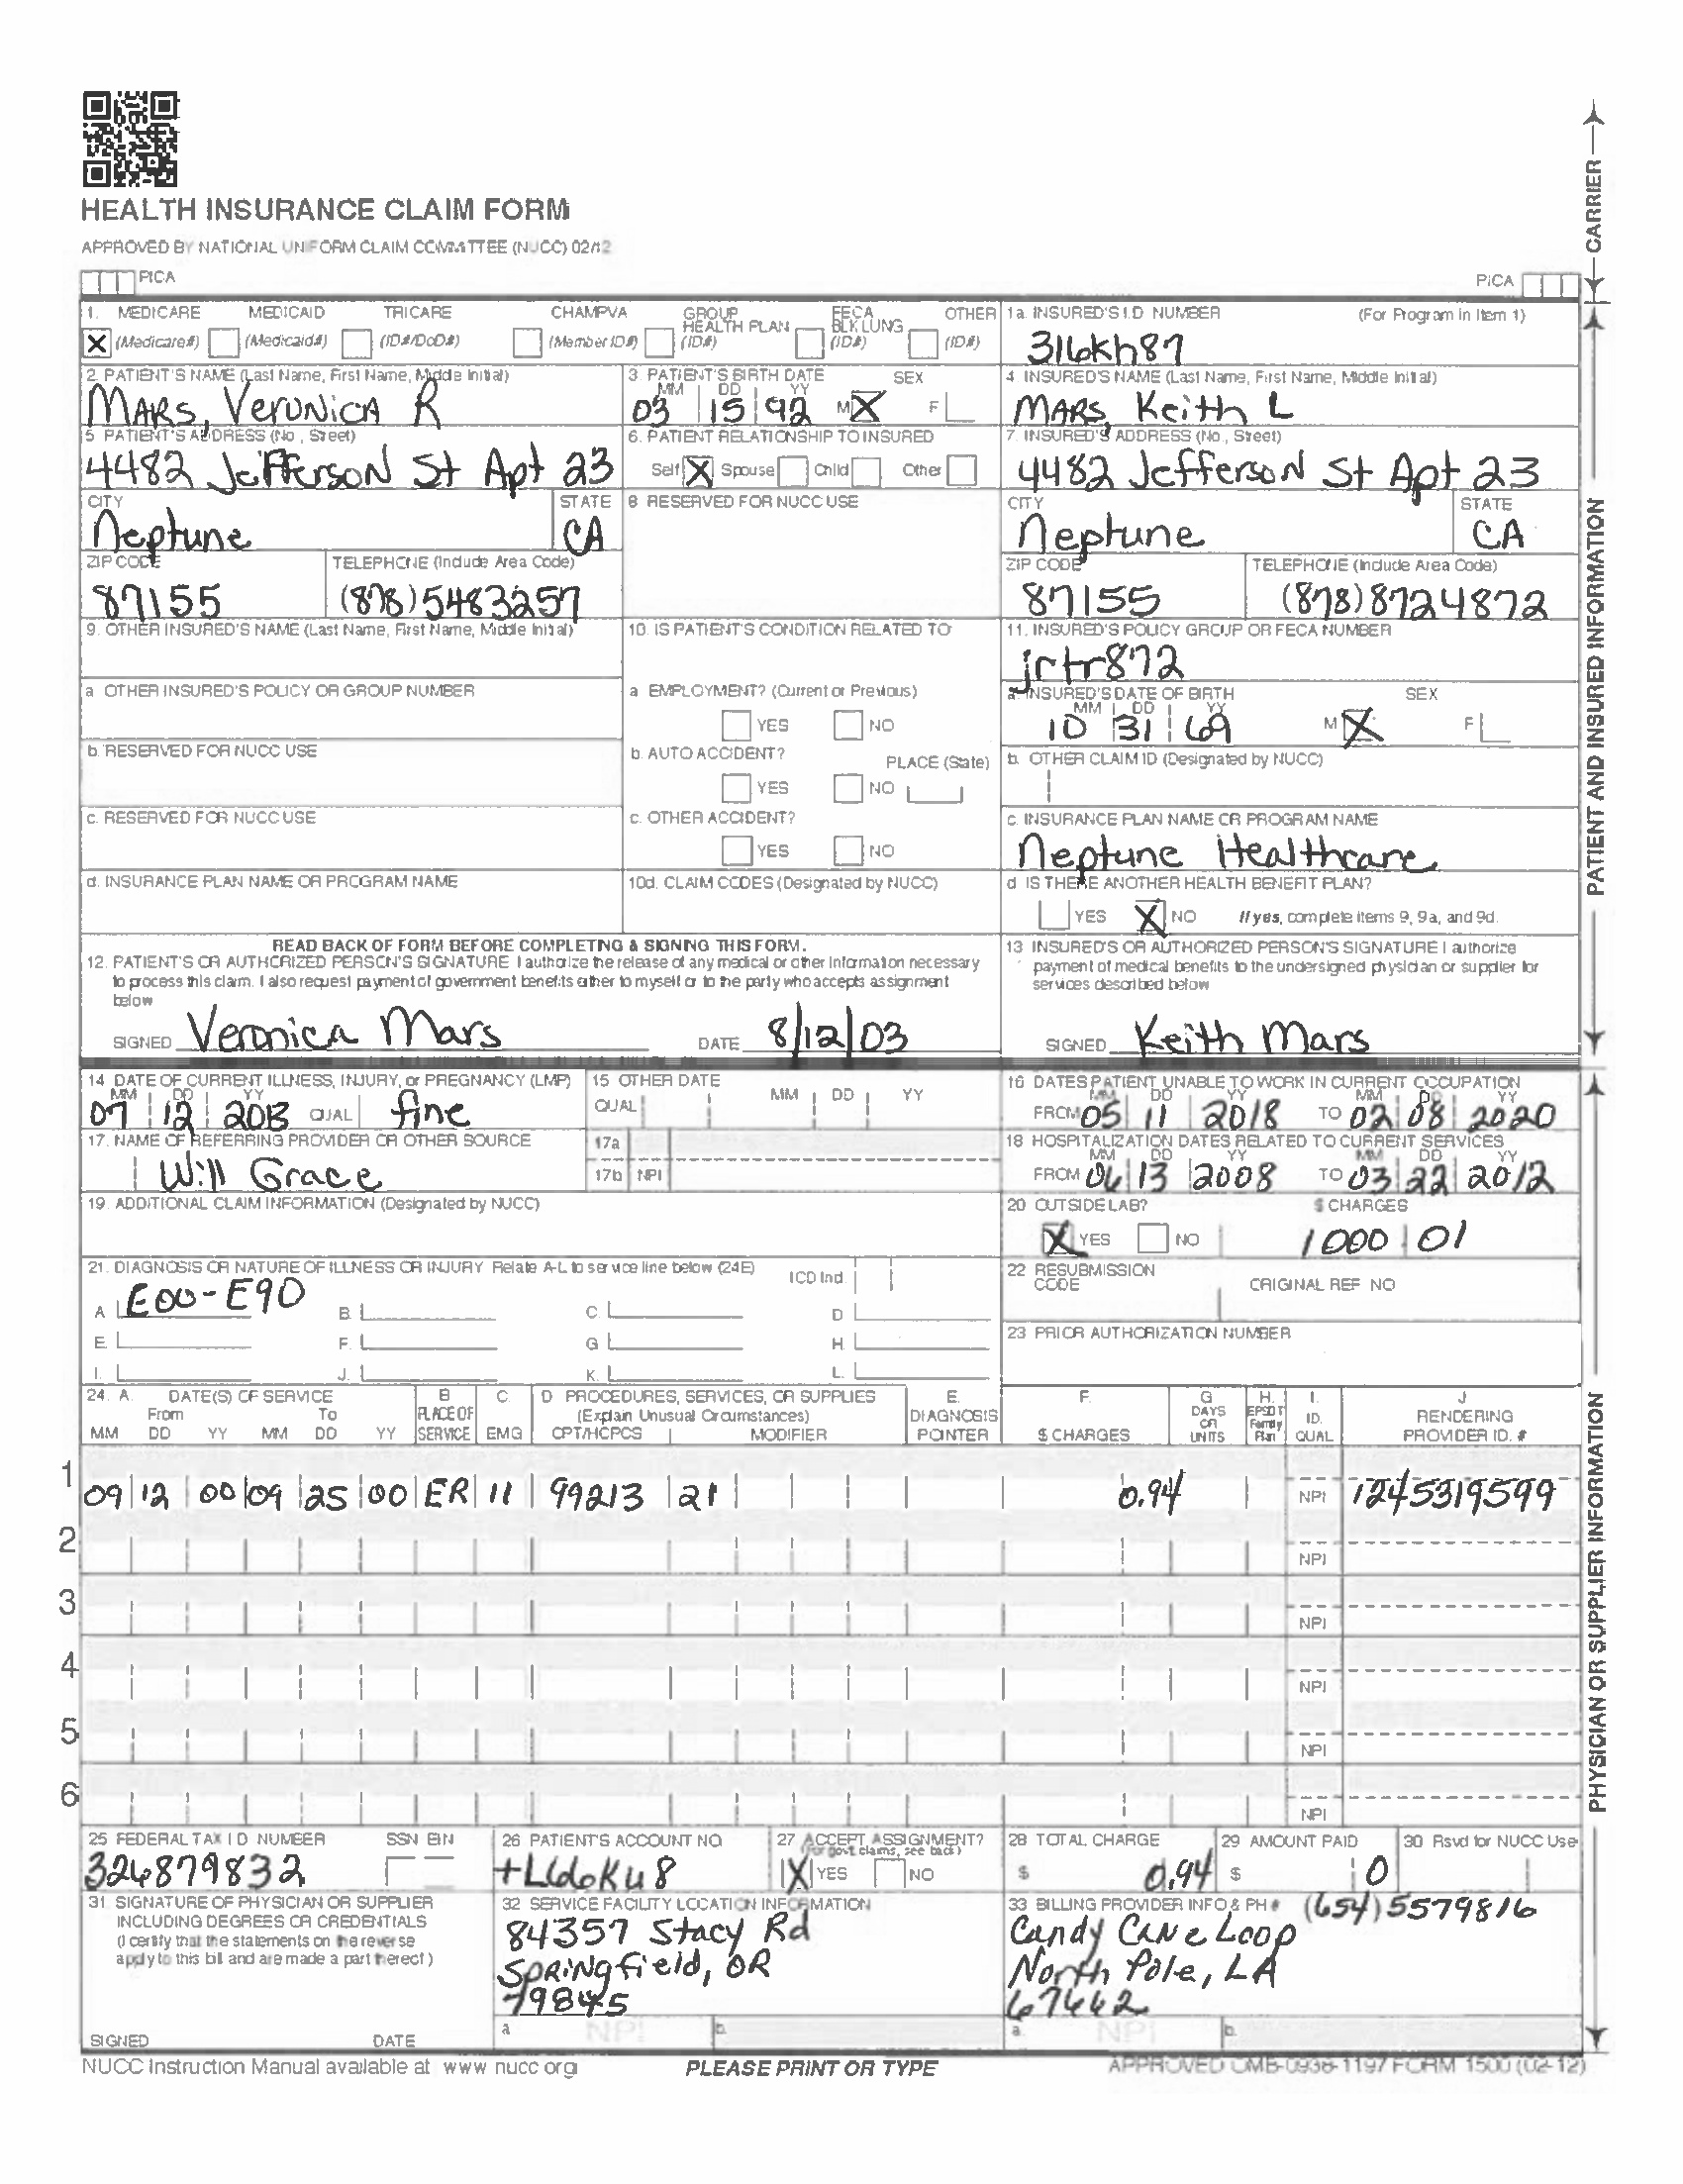 HEALTH INSURANCE CLAIM FORM
APPROVED BY NATIONAL UNIFORM CLAIM COMMITTEE (NUCC) 02/12
PICA
PICA
CARRIER
1. MEDICARE MEDICAID TRICARE CHAMPVA GROUP HEALTH PLAN FECA BLK LUNG OTHER
X (Medicare#) (Medicaid#) (ID#/DoD#) (Member ID#) (ID#) (ID#) (ID#)
1a. INSURED'S I.D. NUMBER (For Program in Item 1)
316kh87
2. PATIENT'S NAME (Last Name, First Name, Middle Initial)
MARS, VERONICA R
3. PATIENT'S BIRTH DATE SEX
MM DD YY
03 15 92 M X F
4. INSURED'S NAME (Last Name, First Name, Middle Initial)
MARS, Keith L
5. PATIENT'S ADDRESS (No., Street)
4482 Jefferson St Apt 23
6. PATIENT RELATIONSHIP TO INSURED
Self X Spouse Child Other
7. INSURED'S ADDRESS (No., Street)
4482 Jefferson St Apt 23
CITY STATE
Neptune CA
8. RESERVED FOR NUCC USE
CITY STATE
Neptune CA
ZIP CODE TELEPHONE (Include Area Code)
87155 (878) 5483257
ZIP CODE TELEPHONE (Include Area Code)
87155 (878) 8724872
9. OTHER INSURED'S NAME (Last Name, First Name, Middle Initial)
10. IS PATIENT'S CONDITION RELATED TO:
11. INSURED'S POLICY GROUP OR FECA NUMBER
jrtr872
a. OTHER INSURED'S POLICY OR GROUP NUMBER
a. EMPLOYMENT? (Current or Previous)
YES NO
a. INSURED'S DATE OF BIRTH SEX
MM DD YY
10 31 69 M X F
b. RESERVED FOR NUCC USE
b. AUTO ACCIDENT? PLACE (State)
YES NO
b. OTHER CLAIM ID (Designated by NUCC)
c. RESERVED FOR NUCC USE
c. OTHER ACCIDENT?
YES NO
c. INSURANCE PLAN NAME OR PROGRAM NAME
Neptune Healthcare
d. INSURANCE PLAN NAME OR PROGRAM NAME
10d. CLAIM CODES (Designated by NUCC)
d. IS THERE ANOTHER HEALTH BENEFIT PLAN?
YES X NO If yes, complete items 9, 9a, and 9d.
READ BACK OF FORM BEFORE COMPLETING & SIGNING THIS FORM.
12. PATIENT'S OR AUTHORIZED PERSON'S SIGNATURE I authorize the release of any medical or other information necessary
to process this claim. I also request payment of government benefits either to myself or to the party who accepts assignment
below
SIGNED Veronica Mars DATE 8/12/03
13. INSURED'S OR AUTHORIZED PERSON'S SIGNATURE I authorize
payment of medical benefits to the undersigned physician or supplier for
services described below
SIGNED Keith Mars
PATIENT AND INSURED INFORMATION
14. DATE OF CURRENT ILLNESS, INJURY, or PREGNANCY (LMP)
MM DD YY
07 12 2013 QUAL fine
15. OTHER DATE
QUAL MM DD YY
16. DATES PATIENT UNABLE TO WORK IN CURRENT OCCUPATION
MM DD YY MM DD YY
FROM 05 11 2018 TO 02 08 2020
17. NAME OF REFERRING PROVIDER OR OTHER SOURCE
Will Grace
17a
17b NPI
18. HOSPITALIZATION DATES RELATED TO CURRENT SERVICES
MM DD YY MM DD YY
FROM 06 13 2008 TO 03 22 2012
19. ADDITIONAL CLAIM INFORMATION (Designated by NUCC)
20. OUTSIDE LAB? $ CHARGES
X YES NO 1000 01
21. DIAGNOSIS OR NATURE OF ILLNESS OR INJURY Relate A-L to service line below (24E) ICD Ind.
A. E00-E90 B. C. D.
E. F. G. H.
I. J. K. L.
22. RESUBMISSION CODE ORIGINAL REF. NO.
23. PRIOR AUTHORIZATION NUMBER
24. A. DATE(S) OF SERVICE B. C. D. PROCEDURES, SERVICES, OR SUPPLIES E. F. G. H. I. J.
From To PLACE OF SERVICE EMG (Explain Unusual Circumstances) DIAGNOSIS POINTER $ CHARGES DAYS OR UNITS EPSDT Family Plan ID. QUAL RENDERING PROVIDER ID. #
MM DD YY MM DD YY CPT/HCPCS MODIFIER
1 09 12 00 09 25 00 ER 11 99213 21 0.94 NPI 1245319599
2 NPI
3 NPI
4 NPI
5 NPI
6 NPI
25. FEDERAL TAX I.D. NUMBER SSN EIN
326879832
26. PATIENT'S ACCOUNT NO.
27. ACCEPT ASSIGNMENT?
(For govt. claims, see back)
X YES NO
28. TOTAL CHARGE
$ 0.94
29. AMOUNT PAID
$ 0
30. Rsvd for NUCC Use
31. SIGNATURE OF PHYSICIAN OR SUPPLIER
INCLUDING DEGREES OR CREDENTIALS
(I certify that the statements on the reverse
apply to this bill and are made a part thereof.)
SIGNED DATE
32. SERVICE FACILITY LOCATION INFORMATION
84357 Stacy Rd
Springfield, OR
79845
a. NPI b.
33. BILLING PROVIDER INFO & PH # (654) 5579816
Candy Cane Loop
North Pole, LA
67662
a. NPI b.
PHYSICIAN OR SUPPLIER INFORMATION
NUCC Instruction Manual available at: www.nucc.org
PLEASE PRINT OR TYPE
APPROVED OMB-0938-1197 FORM 1500 (02-12)